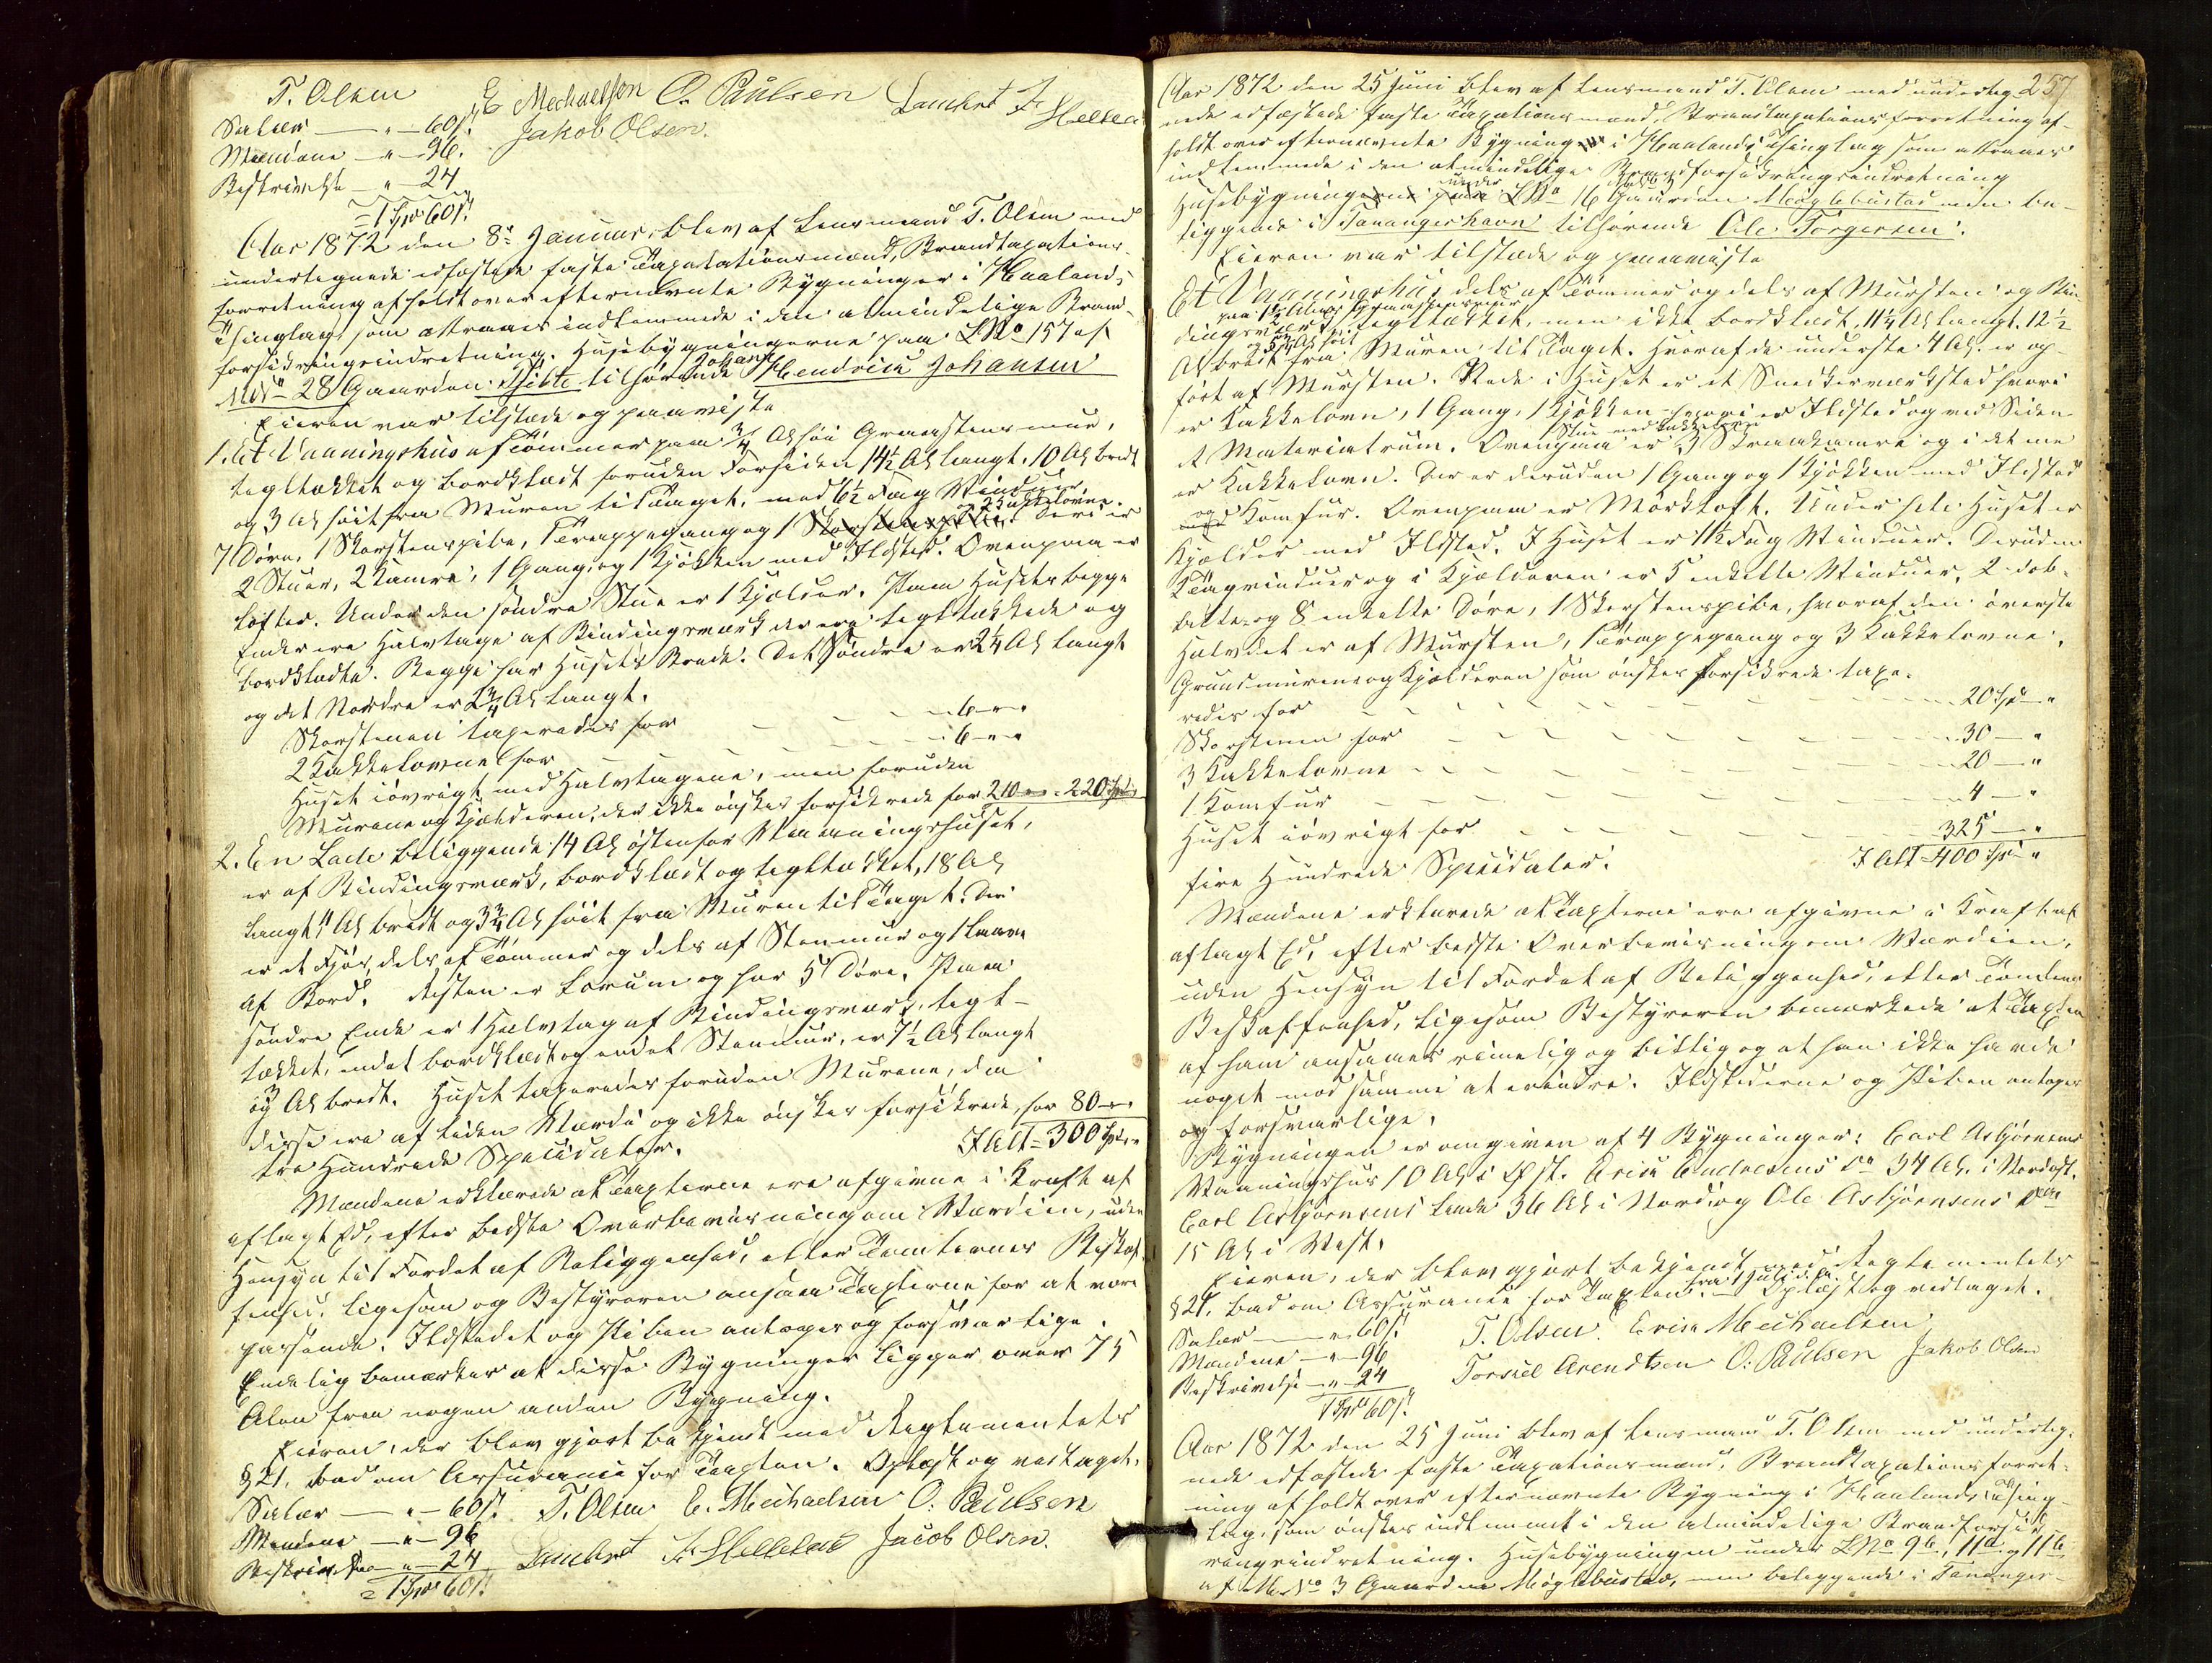 T. Olsen E Mechaelsen O. Paulsen Lambert Fr Hellela
Salær — " — 60 s. Jakob Olsen.
Mændene — " — 96.
Beskrivelse — " — 24
= 1 Spd 60 s.
Aar 1872 den 8de Januar, blev af Lensmand T. Olsen med
undertegnede edfæstede faste Taxatationsmænd, Brandtaxations-
forretning afholdt over efternævnte Bygninger i Haalands
Thinglag, som attraaes indlemmede i den almindelige Brand-
forsikringsindretning. Husebygningerne paa LNo 157 af
MNo 28 Gaarden Tjelte tilhørende Johan Hendrick Johansen
Eieren var tilstæde og paaviste
1. Et Vaaningshus af Tømmer paa 3/4 Al høi Graastensmur,
tegltækket og bordklædt foruden Forsiden 14 1/2 Al langt. 10 Al bredt
og 3 Al høit fra Muren til Taget, med 6 1/2 Fag Vinduer,
7 Døre, 1 Skorstenspibe, 1 Trappegang og 2 Kakkelovne. Deri er
2 Stuer, 2 Kamre, 1 Gang, og 1 Kjøkken med Ildsted. Ovenpaa er
Lofter. Under den søndre Stue er 1 Kjelder. Paa Husets begge
Ender ere Halvtage af Bindingsværk der ere tegltækkede og
bordklædte. Begge har Husets Brede. Det Søndre er 2 1/4 Al langt
og det Nordre er 2 3/4 Al langt.
Skorstenen taxeredes for — — — — 6 — " "
2 Kakkelovne for — — — — 6 — " "
Huset iøvrigt med Halvtagene, men foruden
Murene og Kjelderen, der ikke ønskes forsikrede for 210 — " 220 Spd
2. En Lade beliggende 14 Al østenfor Vaaningshuset,
er af Bindingsværk, bordklædt og tegltækket, 18 Al
langt 11 Al bredt og 3 3/4 Al høit fra Muren til Taget. Deri
er et Fjøs, dels af Tømmer og dels af Stenmur og 1 Laave
af Bord. Resten er Lørum og har 5 Døre. Paa
søndre Ende er 1 Halvtag af Bindingsværk, tegl-
tækket, endel bordklædt og endel Stenmur, er 7 1/2 Al langt
og Al bredt. Huset taxeredes foruden Murene, da
disse ere af liden Værdi og ikke ønskes forsikrede, for 80 — "
tre Hundrede Speciedaler. I Alt = 300 Spd "
Mændene erklærede at Taxterne ere afgivne i Kraft af
aflagt Ed, efter bedste Overbevisning om Værdien, uden
Hensyn til Fordel af Beliggenhed, eller Tomternes Beskaf-
fenhed, ligesom og Bestyreren ansaa Taxterne for at være
passende. Ildstedet og Piben antages og forsvarlige.
Endelig bemærkes at disse Bygninger ligger over 75
Alen fra nogen anden Bygning.
Eieren, der blev gjort bekjendt med Reglementets
§ 21, bad om Assurance for Taxten. Oplæst og vedtaget.
Salær — " — 60 s. T. Olsen E. Mechaelsen O. Paulsen
Mændene — " — 96 Lambert Fr Hellelad Jacob Olsen.
Beskrivelse — " — 24
= 1 Spd 60 s.
257
Aar 1872 den 25 Juni blev af Lensmand T. Olsen med underteg-
nede edfæstede faste Taxationsmænd, Brandtaxationsforretning af-
holdt over efternævnte Bygning i Haalands Thinglag som attraaes
indlemmede i den almindelige Brandforsikringsindretning
Husebygningen under LNo 16 Gaarden Meglebustad men be-
liggende i Tanangerhavn tilhørende Ole Torgersen.
Eieren var tilstæde og paaviste
Et Vaaningshus, dels af Tømmer og dels af Mursten og Bin-
dingsværk, paa 1 1/2 Alens Graastensmur tegltækket, men ikke bordklædt, 11 1/4 Al langt, 12 1/2
Al bredt og 5 3/4 Al høit fra Muren til Taget. Hvoraf de underste 4 Al. er op-
ført af Mursten. Nede i Huset er et Snedkerværksted hvori
er Kakkelovn, 1 Gang, 1 Kjøkken hvori er Ildsted og ved Siden
et Materialrum. Ovenpaa er Stue med Kakkelovn 3 Kamre og i det ene
er Kakkelovn. Der er desuden 1 Gang og 1 Kjøkken med Ildsted
og Komfur. Ovenpaa er Mørkloft. Under hele Huset er
Kjelder med Ildsted. I Huset er 11 1/2 Fag Vinduer. Desuden
Tagvinduer og i Kjelderen er 5 enkelte Vinduer, 2 dob-
belte og 8 enkelte Døre, 1 Skorstenspibe, hvoraf den øverste
Halvdel er af Mursten, 1 Trappegang og 3 Kakkelovne.
Grundmurene og Kjelderen som ønskes forsikrede taxe-
redes for — — — — 20 Spd "
Skorstenen for — — — — 30 — "
3 Kakkelovne — — — — 20 — "
1 Komfur — — — — 4 — "
Huset iøvrigt for — — — — 325 — "
fire Hundrede Speciedaler. I Alt = 400 Spd "
Mændene erklærede at Taxterne ere afgivne i Kraft af
aflagt Ed, efter bedste Overbevisning om Værdien,
uden Hensyn til Fordel af Beliggenhed, eller Tomtens
Beskaffenhed, ligesom Bestyreren bemærkede at Taxten
af ham ansaaes rimelig og billig og at han ikke havde
noget mod samme at erindre. Ildstederne og Piben antages
og forsvarlige.
Bygningen er omgiven af 4 Bygninger: Carl Asbjørnsens
Vaaningshus 10 Al i Øst. Erick Endresens do 34 Al. i Nordost.
Carl Asbjørnsens Lade 36 Al i Nord og Ole Asbjørnsens do
15 Al i Vest.
Eieren, der blev gjort bekjendt med Reglementets
§ 21, bad om Assurance for Taxten fra 1 Juli d. A. Oplæst og vedtaget.
Salær — " 60 s. T. Olsen. Erick Mechaelsen
Mændene — " 96 Torkiel Arendtsen O. Paulsen Jakob Olsen
Beskrivelse — " 24
1 Spd 60 s.
Aar 1872 den 25 Juni blev af Lensmand T. Olsen med underteg-
nede edfæstede faste Taxationsmænd, Brandtaxationsforret-
ning afholdt over efternævnte Bygning i Haalands Thing-
lag, som ønskes indlemmet i den almindelige Brandforsik-
ringsindretning. Husebygningen under LNo 9b, 11a og 11b
af MNo 3 Gaarden Møglebustad, men beleggende i Tananger-